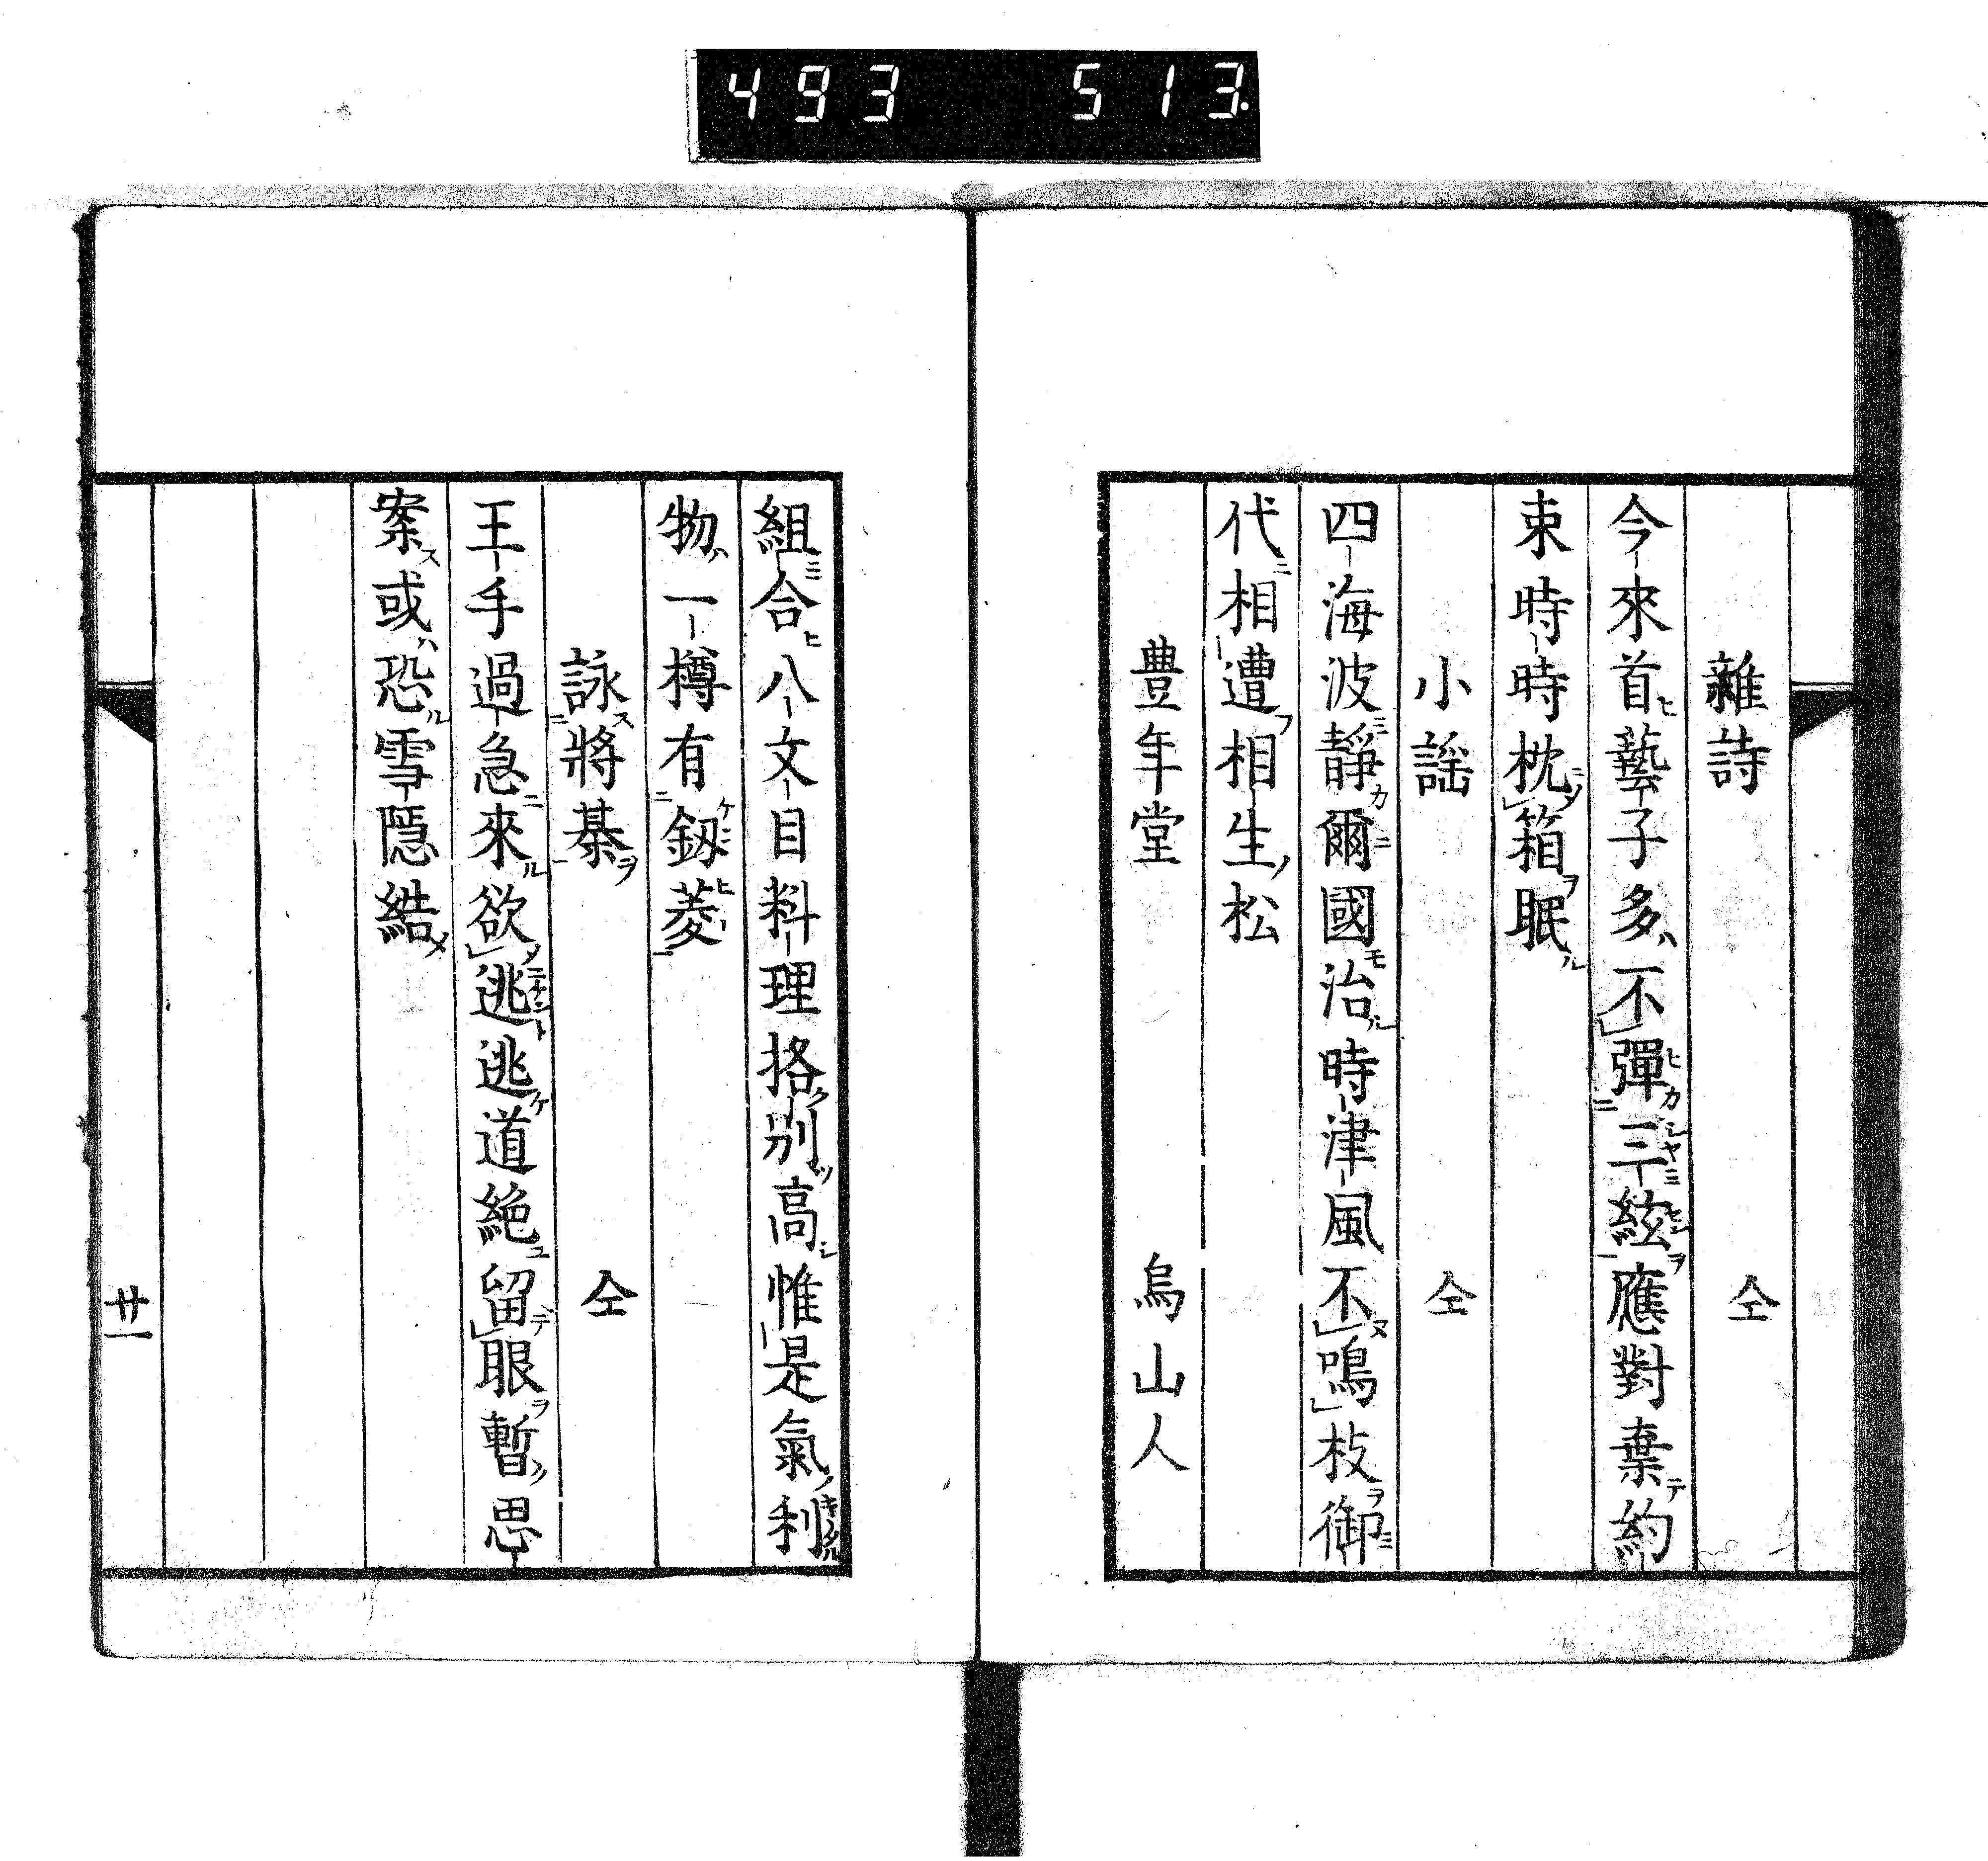 493 513.
雜詩 仝
今來首藝子多不彈三絃應對棄約
束時時枕箱眠
小謡 仝
四海波靜爾國治時津風不鳴枝御
代相遭相生松
豊年堂 烏山人
組合八文目料理格別高惟是氣利
物一樽有釼菱
詠將棊 仝
王手過急來欲逃逃道絶留眼暫思
案或恐雪隱
廿一